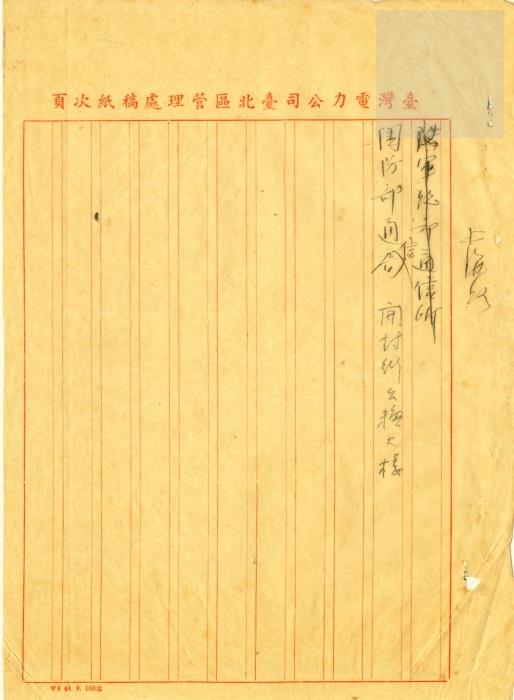 臺灣電力公司臺北區管理處稿紙次頁
上海路
陸軍總部通信所
國防部通信 開封街公大樓
44. 9. 100本